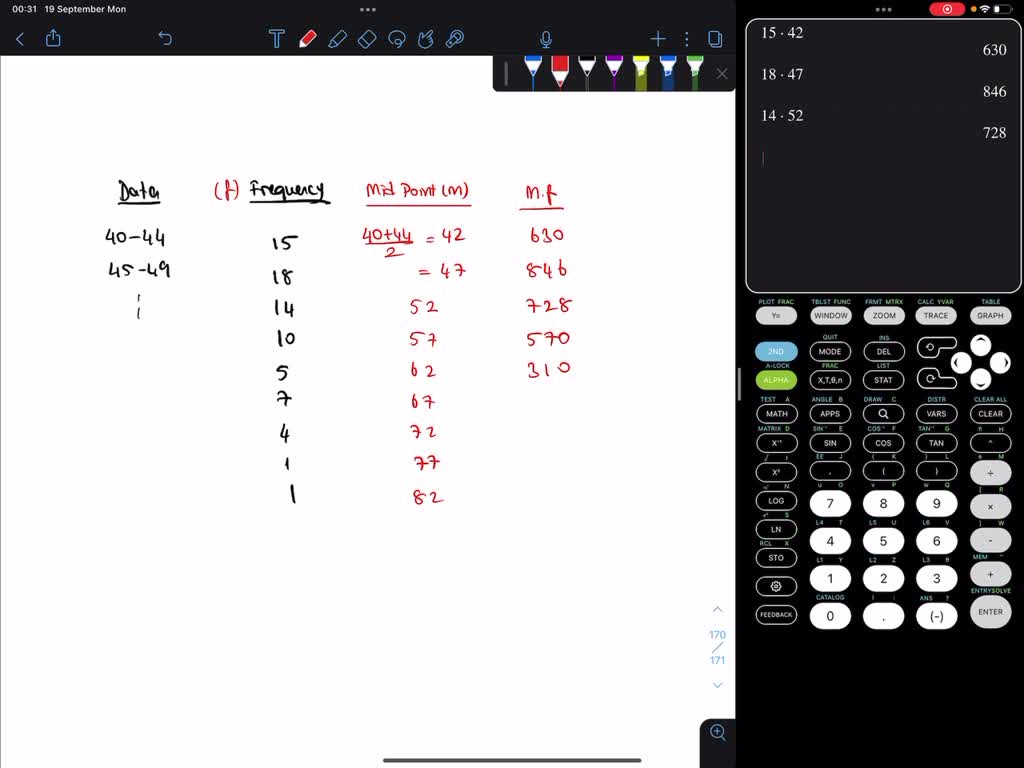 00:31 19 September Mon
15 · 42
630
18 · 47
846
14 · 52
728
Data (f) Frequency Mid Point (m) m.f
40-44 15 40+44/2 = 42 630
45-49 18 = 47 846
14 52 728
10 57 570
5 62 310
7 67
4 72
1 77
1 82
170
171
PLOT FRAC TBLST FUNC FRMT MTRX CALC YVAR TABLE
Y= WINDOW ZOOM TRACE GRAPH
QUIT INS
2ND MODE DEL
A-LOCK FRAC LIST
ALPHA X,T,θ,n STAT
TEST A ANGLE B DRAW C DISTR CLEAR ALL
MATH APPS VARS CLEAR
MATRIX D SIN⁻¹ E COS⁻¹ F TAN⁻¹ G π H
X⁻¹ SIN COS TAN ^
√ I EE J { K } L e M
X² , ( ) ÷
N u O v P w Q [ R
LOG 7 8 9 ×
eˣ S L4 T L5 U L6 V ] W
LN 4 5 6 -
RCL X L1 Y L2 Z L3 θ MEM "
STO 1 2 3 +
CATALOG i : ANS ? ENTRYSOLVE
FEEDBACK 0 . (-) ENTER